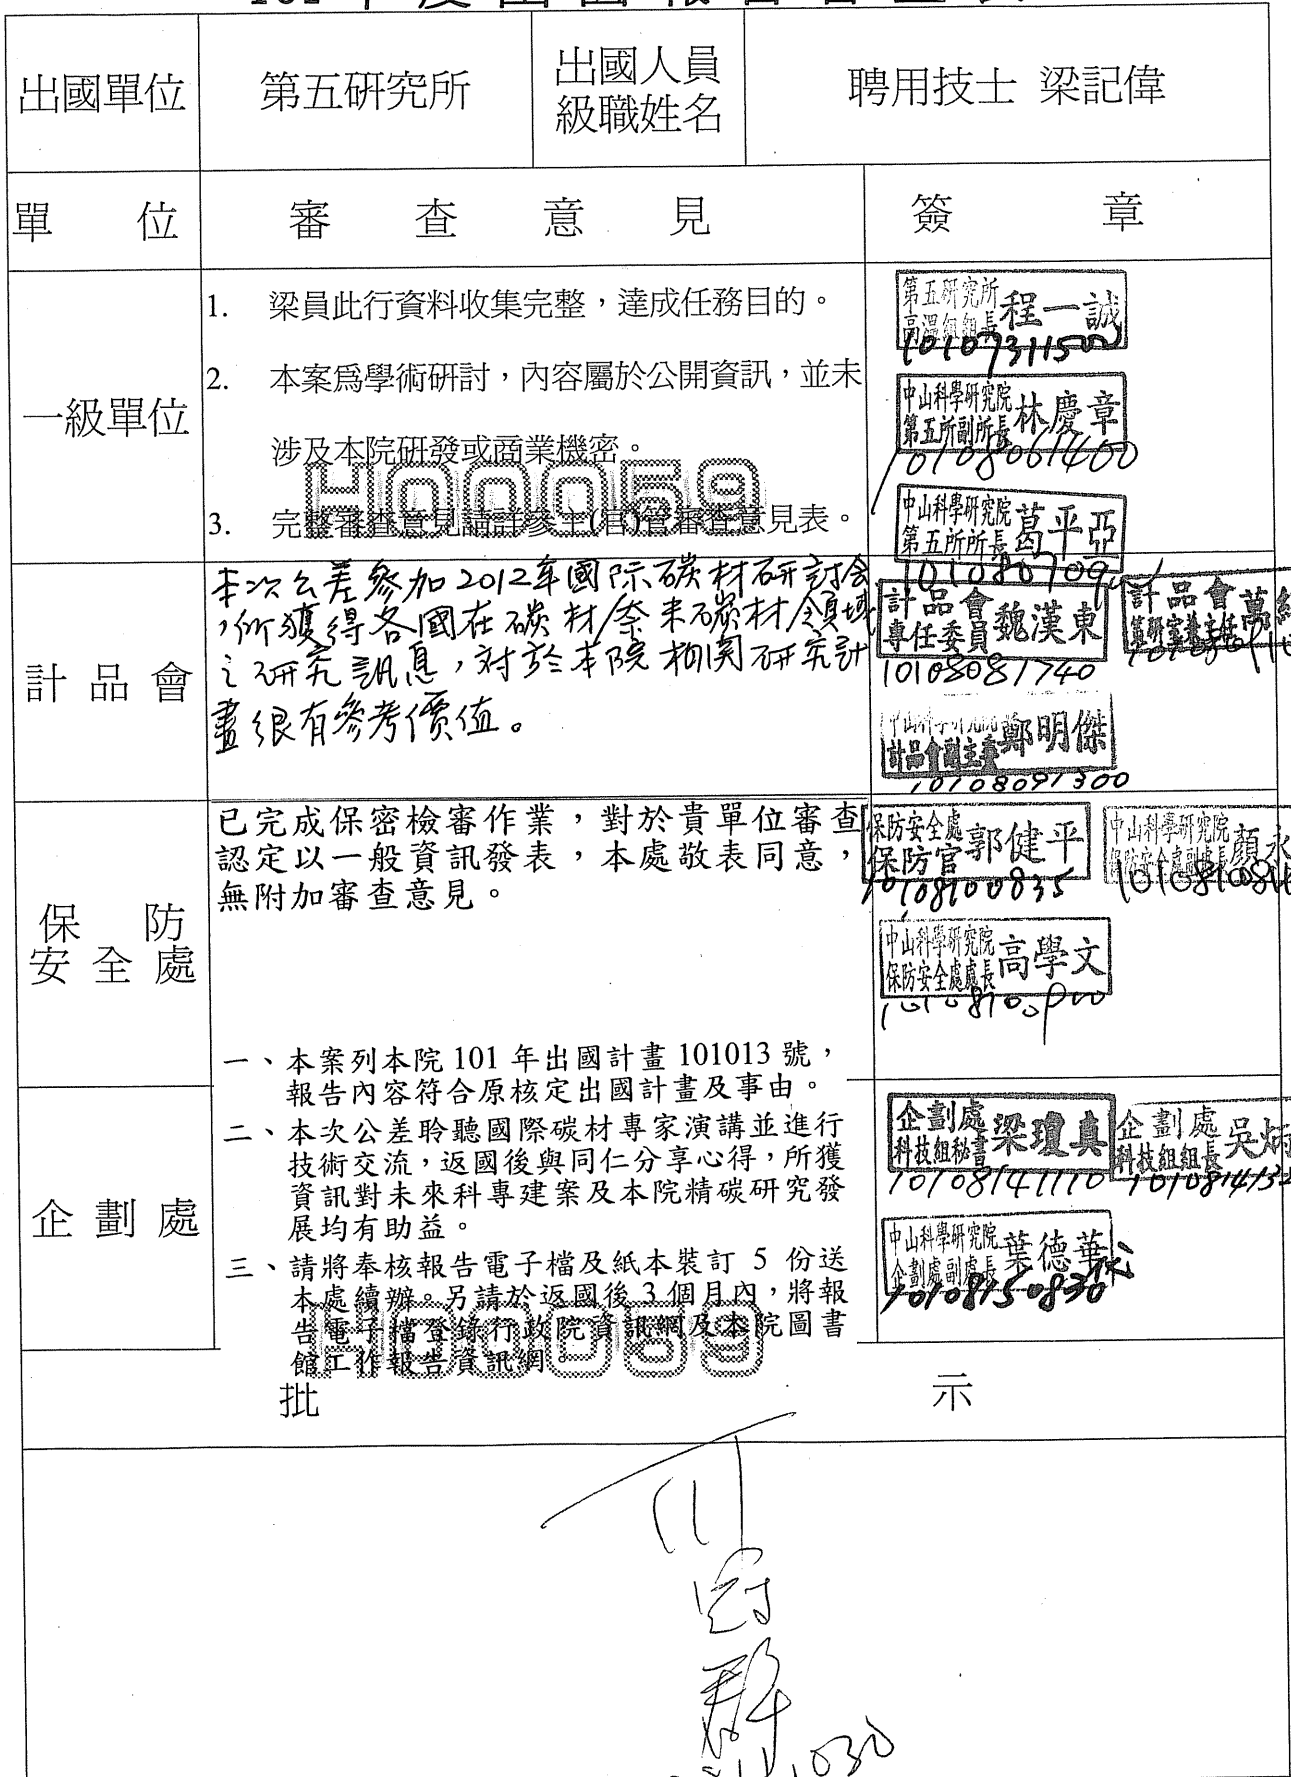 101 年 度 出 國 報 告 審 查 表
出國單位
第五研究所
出國人員
級職姓名
聘用技士 梁記偉
單 位
審 查 意 見
簽 章
一級單位
1. 梁員此行資料收集完整，達成任務目的。
2. 本案為學術研討，內容屬於公開資訊，並未
涉及本院研發或商業機密。
3. 完整審查意見請詳參主(官)管審查意見表。
H00059
第五研究所
高溫組組長 程一誠
10107311500
中山科學研究院
第五所副所長 林慶章
10108061400
中山科學研究院
第五所所長 葛平亞
計品會
本次公差參加2012年國际碳材研討会
，所獲得各國在碳材/奈米碳材領域
之研究訊息，对於本院相関研究計
畫很有參考價值。
計品會
專任委員 魏漢東
10108081740
計品會
中山科學研究院
計品會副主委 鄭明傑
10108091300
保 防
安 全 處
已完成保密檢審作業，對於貴單位審查
認定以一般資訊發表，本處敬表同意，
無附加審查意見。
保防安全處
保防官 郭健平
10108100835
中山科學研究院
保防安全處副處長 顏永
中山科學研究院
保防安全處處長 高學文
10108100900
企 劃 處
一、本案列本院 101 年出國計畫 101013 號，
報告內容符合原核定出國計畫及事由。
二、本次公差聆聽國際碳材專家演講並進行
技術交流，返國後與同仁分享心得，所獲
資訊對未來科專建案及本院精碳研究發
展均有助益。
三、請將奉核報告電子檔及紙本裝訂 5 份送
本處續辦。另請於返國後 3 個月內，將報
告電子檔登錄行政院資訊網及本院圖書
館工作報告資訊網
H00059
企劃處
科技組秘書 梁瓊真
10108141110
企劃處
科技組組長 吳炳
中山科學研究院
企劃處副處長 葉德華代
10108150830
批 示